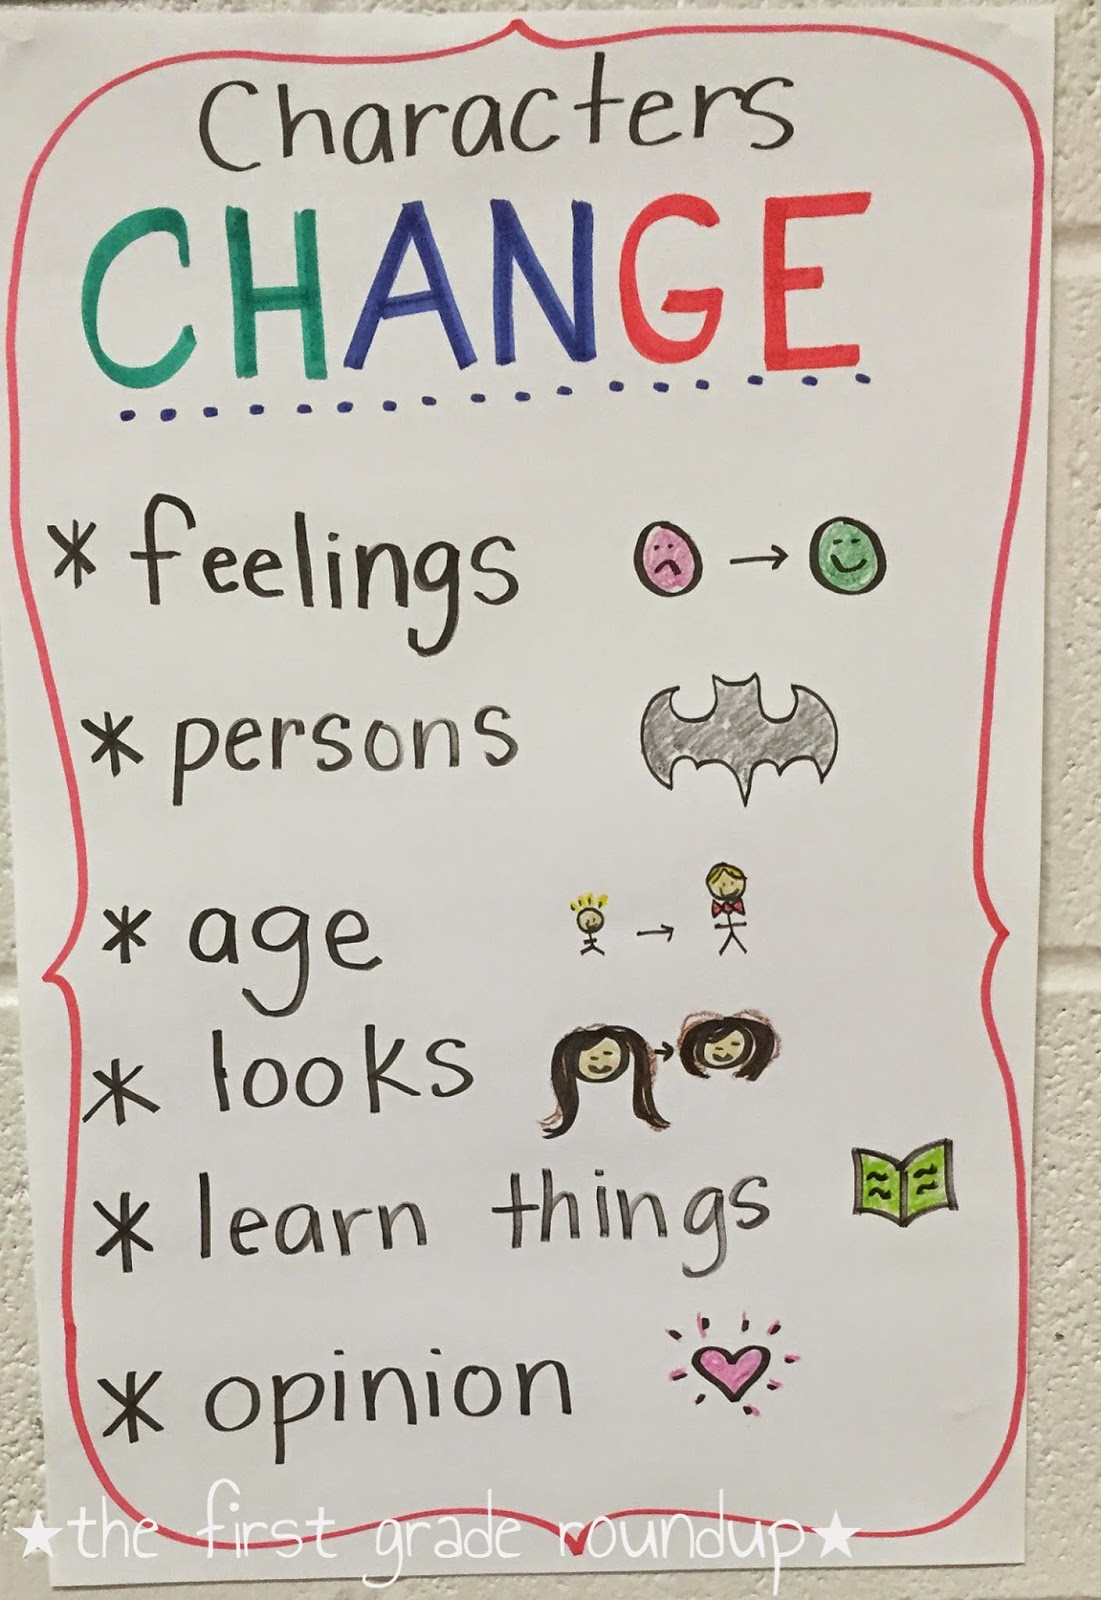 Characters
CHANGE
* feelings
* persons
* age
* looks
* learn things
* opinion
★the first grade roundup★